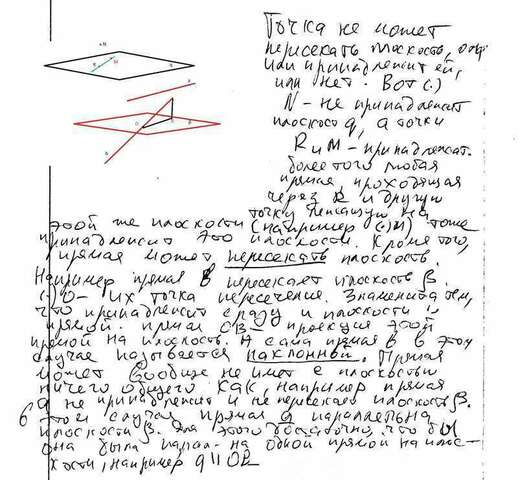 Точка не может
пересекать плоскость, она
или принадлежит ей,
или нет. Вот (.)
N - не принадлежит
плоскост q, а точки
R и M - принадлежат.
более того любая
прямая, проходящая
через R и другую
точку лежащую на
этой же плоскости (например (.) M) тоже
принадлежит этой плоскости. Кроме того,
прямая может пересекать плоскость.
Например прямая b пересекает плоскость β.
(.) O - их точка пересечения. Знаменита тем,
что принадлежит сразу и плоскости и
прямой. прямая OB - проекция этой
прямой на плоскость. А сама прямая b в этом
случае называется наклонной. Прямая
может вообще не имет с плоскостью
ничего общего как, например прямая
q не принадлежит и не пересекает плоскость β.
в этом случае прямая q параллельна
плоскости β. Для этого достаточно, что бы
она была парал-на одной прямой на плос-
кости, например q II OP